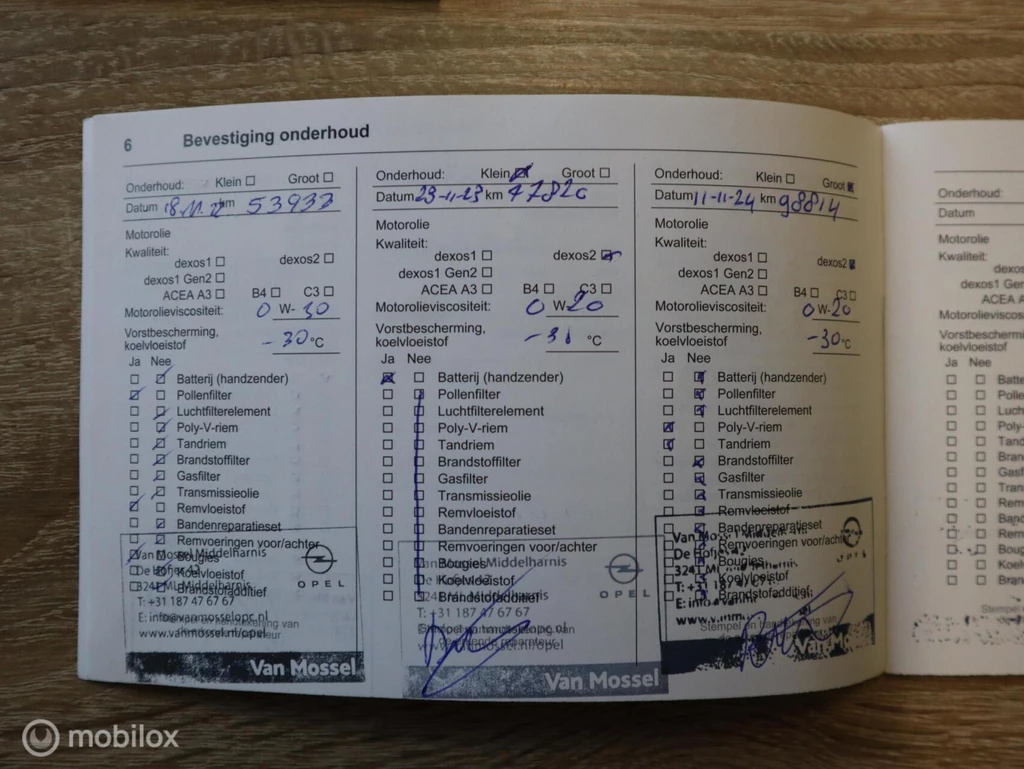 6 Bevestiging onderhoud
Onderhoud: Klein Groot
Datum 18.11.22 km 53933
Motorolie
Kwaliteit:
dexos1 dexos2
dexos1 Gen2
ACEA A3 B4 C3
Motorolieviscositeit: 0 W-30
Vorstbescherming,
koelvloeistof -30 °C
Ja Nee
Batterij (handzender)
Pollenfilter
Luchtfilterelement
Poly-V-riem
Tandriem
Brandstoffilter
Gasfilter
Transmissieolie
Remvloeistof
Bandenreparatieset
Remvoeringen voor/achter
Bougies
Koelvloeistof
Brandstofadditief
Van Mossel Middelharnis
OPEL
T: +31 187 47 67 67
E: info@vanmosselopc.nl
www.vanmossel.nl/opel
Van Mossel
Onderhoud: Klein Groot
Datum 23-11-23 km 77820
Motorolie
Kwaliteit:
dexos1 dexos2
dexos1 Gen2
ACEA A3 B4 C3
Motorolieviscositeit: 0 W-20
Vorstbescherming,
koelvloeistof -31 °C
Ja Nee
Batterij (handzender)
Pollenfilter
Luchtfilterelement
Poly-V-riem
Tandriem
Brandstoffilter
Gasfilter
Transmissieolie
Remvloeistof
Bandenreparatieset
Remvoeringen voor/achter
Bougies
Koelvloeistof
Brandstofadditief
Middelharnis
OPEL
T: +31 187 47 67 67
Van Mossel
Onderhoud: Klein Groot
Datum 11-11-24 km 98814
Motorolie
Kwaliteit:
dexos1 dexos2
dexos1 Gen2
ACEA A3 B4 C3
Motorolieviscositeit: 0 W-20
Vorstbescherming,
koelvloeistof -30 °C
Ja Nee
Batterij (handzender)
Pollenfilter
Luchtfilterelement
Poly-V-riem
Tandriem
Brandstoffilter
Gasfilter
Transmissieolie
Remvloeistof
Bandenreparatieset
Remvoeringen voor/achter
Bougies
Koelvloeistof
Brandstofadditief
Stempel en handtekening van
Van Mossel
Onderhoud:
Datum
Motorolie
Kwaliteit:
ACEA A
Vorstbescherming
koelvloeistof
Ja Nee
Stempel
mobilox